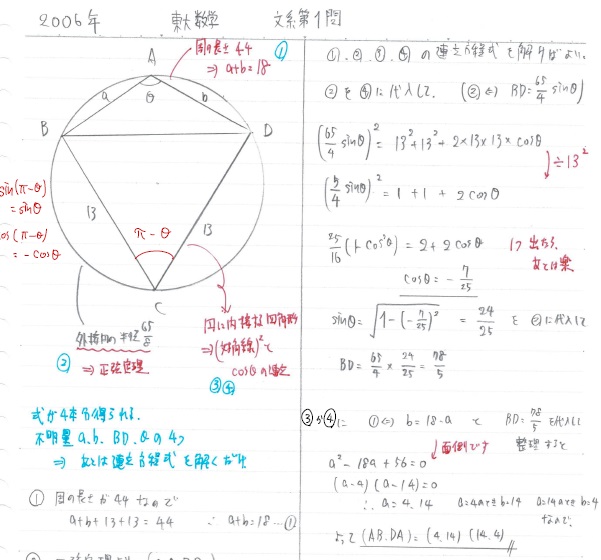 2006年 東大数学 文系第1問
周の長さ44 ①
⇒ a+b=18
A
a θ b
B D
sin(π-θ)
= sinθ
cos(π-θ)
= -cosθ
13 13
π-θ
C
外接円の半径 65/8
② ⇒ 正弦定理
円に内接する四角形
⇒ (対角線)² と
cosθの連立
③④
式が4本得られる.
不明量 a.b. BD. θ の4つ
⇒ あとは連立方程式を解くだけ
① 周の長さが44 なので
a+b+13+13 = 44 ∴ a+b=18 … ①
①.②.③.④ の連立方程式を解けばよい.
②を④に代入して. (②⇔ BD= 65/4 sinθ)
(65/4 sinθ)² = 13²+13²+2×13×13×cosθ
÷13²
(5/4 sinθ)² = 1 + 1 + 2cosθ
25/16 (1-cos²θ) = 2+2cosθ
cosθ = -7/25
1つ出たら,
あとは楽
sinθ= √1-(-7/25)² = 24/25 を②に代入して
BD= 65/4 × 24/25 = 78/5
③か④に ①⇔ b=18-a と BD=78/5 を代入して
整理すると
面倒です
a²-18a+56=0
(a-4)(a-14)=0
∴ a=4.14 a=4のときb=14 a=14のときb=4
なので.
よって (AB.DA)=(4.14)(14.4)